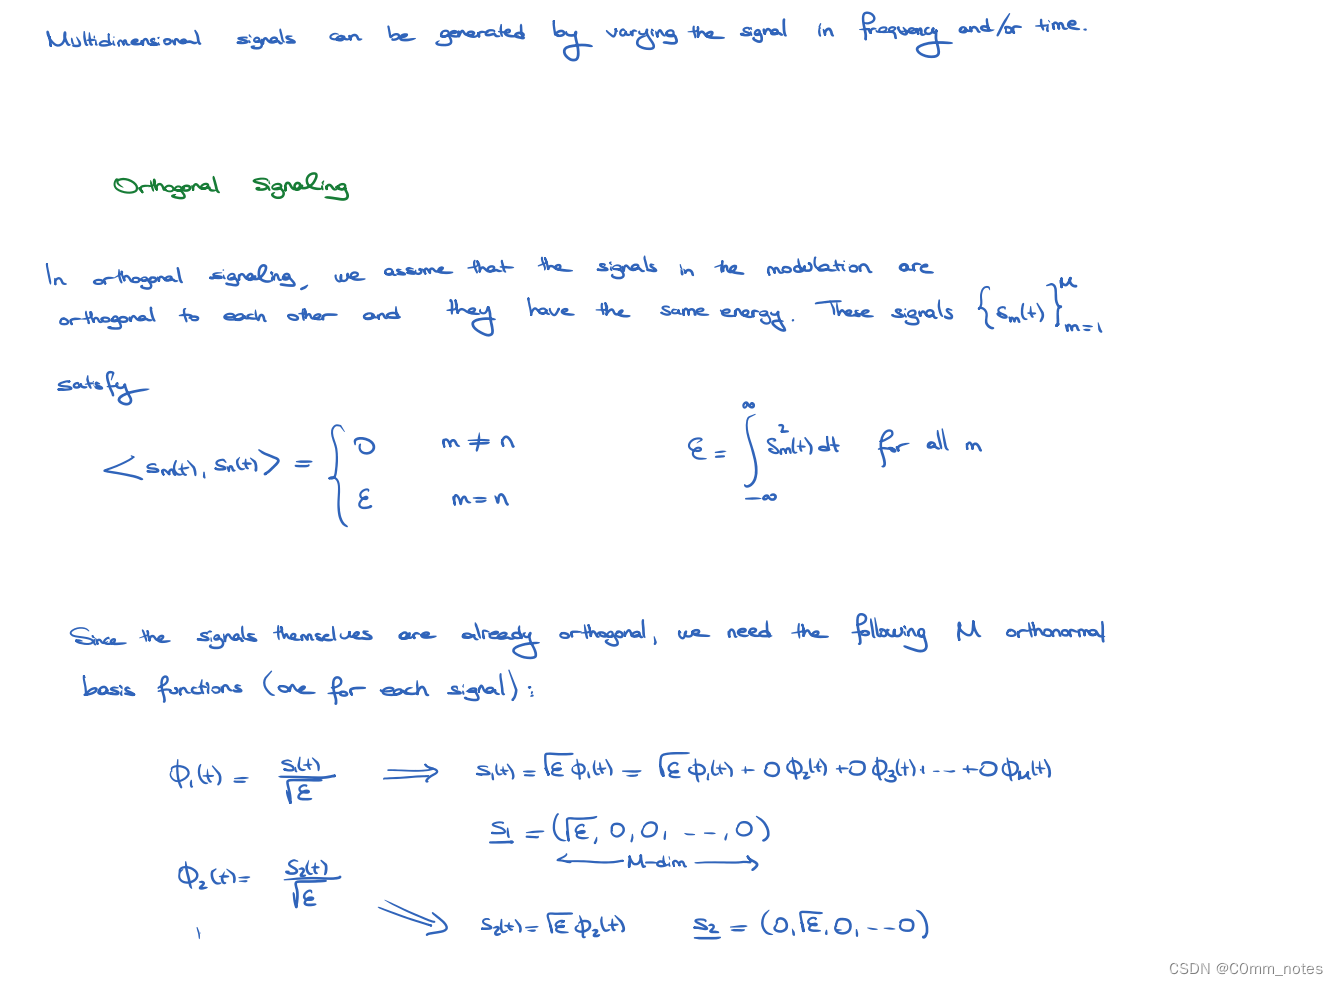 Multidimensional signals can be generated by varying the signal in frequency and/or time.
Orthogonal Signaling
In orthogonal signaling, we assume that the signals in the modulation are
orthogonal to each other and they have the same energy. These signals {s_m(t)}_{m=1}^{M}
satisfy
<s_m(t), s_n(t)> = { 0 m ≠ n
ε m = n
ε = ∫_{-∞}^{∞} s_m^2(t) dt for all m
Since the signals themselves are already orthogonal, we need the following M orthonormal
basis functions (one for each signal):
ϕ_1(t) = s_1(t)/√ε ⟹ s_1(t) = √ε ϕ_1(t) = √ε ϕ_1(t) + 0 ϕ_2(t) + 0 ϕ_3(t) + ... + 0 ϕ_M(t)
s_1 = (√ε, 0, 0, ..., 0)
M-dim
ϕ_2(t) = s_2(t)/√ε
⟹ s_2(t) = √ε ϕ_2(t) s_2 = (0, √ε, 0, ... 0)
CSDN @C0mm_notes